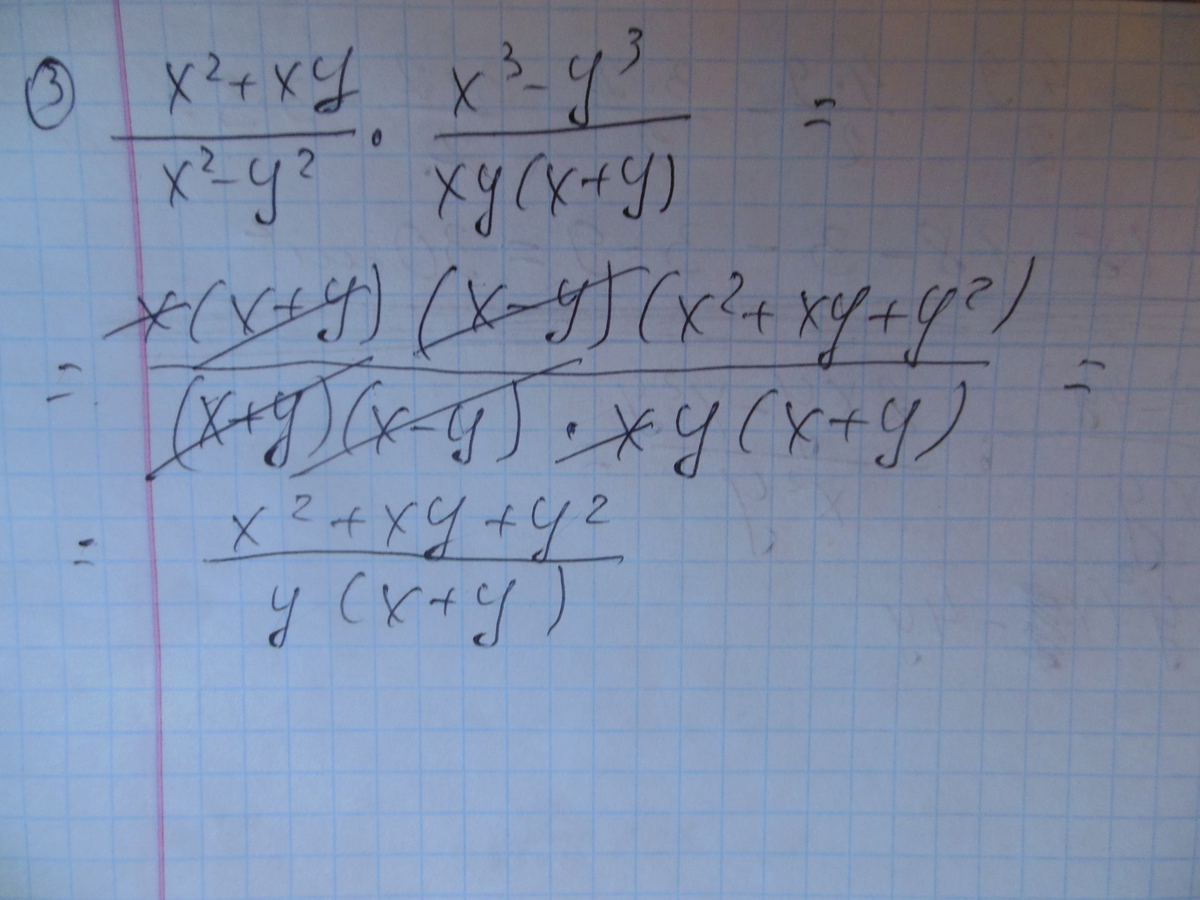 ③ \frac{x^2+xy}{x^2-y^2} \cdot \frac{x^3-y^3}{xy(x+y)} =
= \frac{x(x+y)(x-y)(x^2+xy+y^2)}{(x+y)(x-y) \cdot xy(x+y)} =
= \frac{x^2+xy+y^2}{y(x+y)}